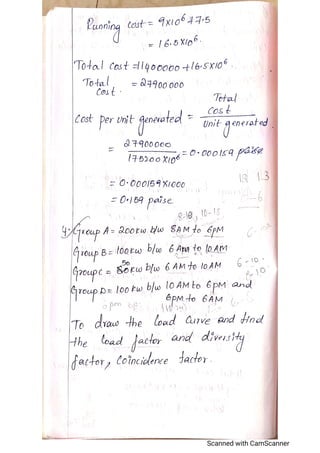 Running Cost = 9X10⁶ + 7.5
= 16.5X10⁶.
Total Cost = 11400000 + 16.5X10⁶
Total Cost = 27900000
Cost per unit generated = Total Cost / Unit generated.
= 27900000 / 175200X10⁶ = 0.000159 paise
= 0.000159X1000
= 0.159 paise.
4. Group A = 200kw b/w 8AM to 6PM
Group B = 100kw b/w 6AM to 10AM
Group C = 50kw b/w 6AM to 10AM
Group D = 100kw b/w 10AM to 6PM and
6PM to 6AM
To draw the Load Curve and find
the Load factor and diversity
factor, Coincidence factor.
Scanned with CamScanner